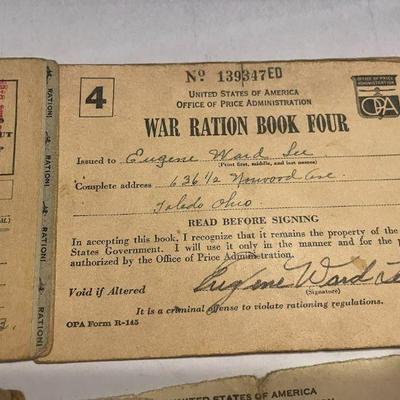 4
Nº 139347ED
UNITED STATES OF AMERICA
OFFICE OF PRICE ADMINISTRATION
OFFICE OF PRICE
ADMINISTRATION
OPA
WAR RATION BOOK FOUR
Issued to Eugene Ward Lee
(Print first, middle, and last names)
Complete address 636½ Norwood Ave
Toledo Ohio
READ BEFORE SIGNING
In accepting this book, I recognize that it remains the property of the
States Government. I will use it only in the manner and for the p
authorized by the Office of Price Administration.
Void if Altered Eugene Ward
(Signature)
It is a criminal offense to violate rationing regulations.
OPA Form R-145
RATIONI
RATIONI
RATIONI
RATIONI
UNITED STATES OF AMERICA